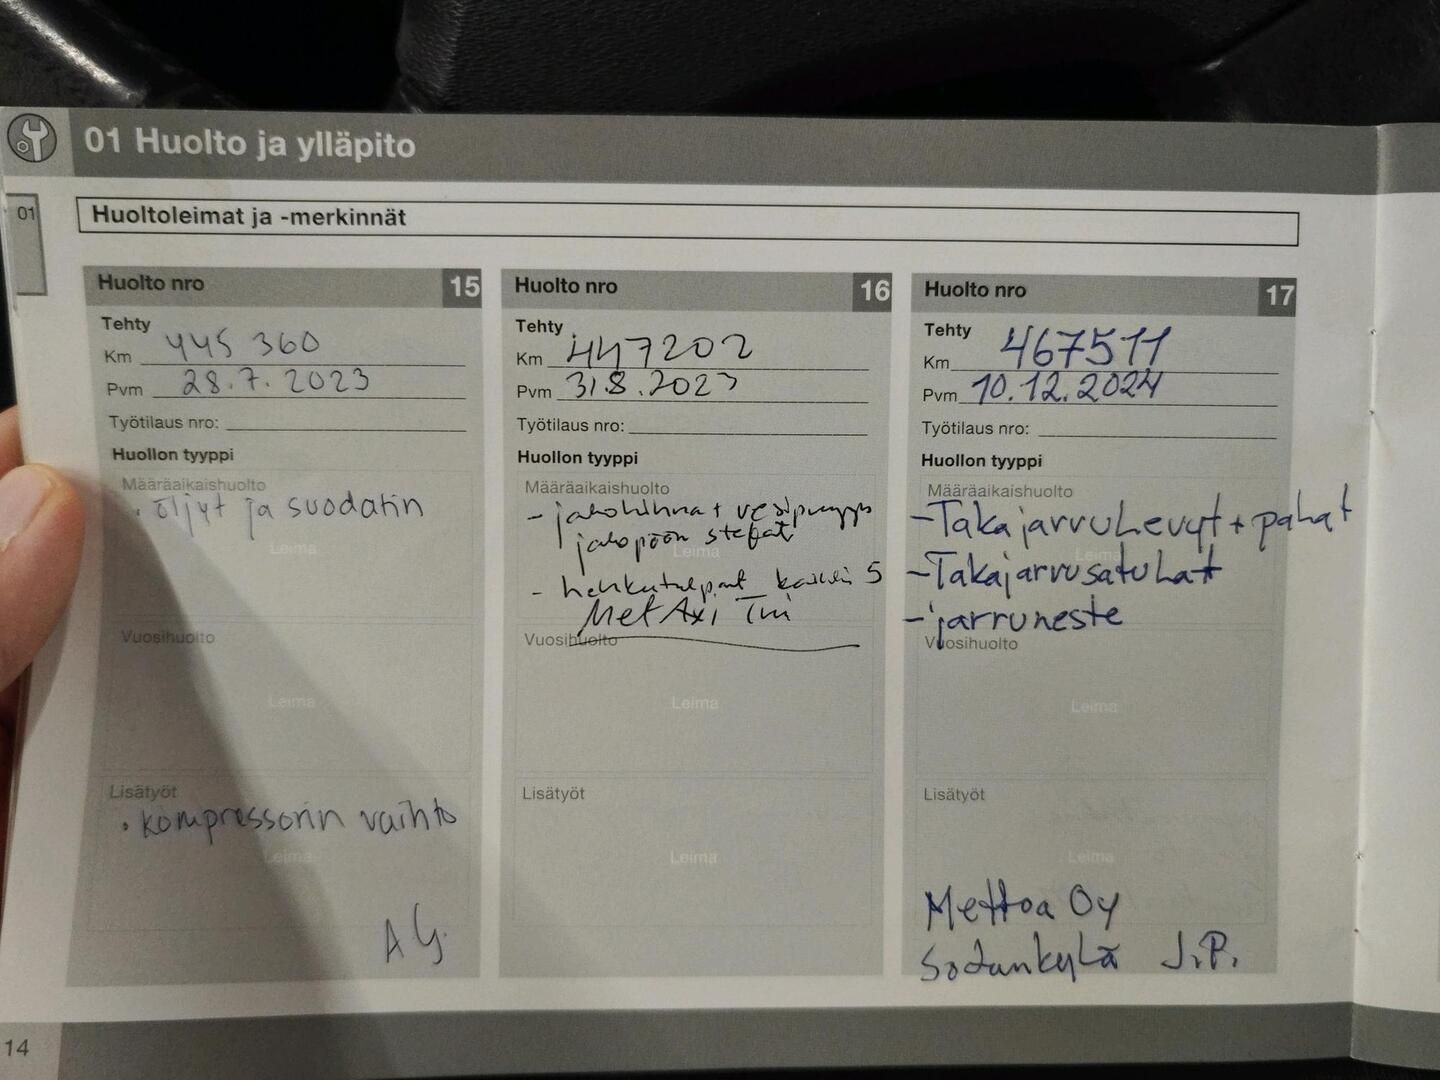 01 Huolto ja ylläpito
01
Huoltoleimat ja -merkinnät
Huolto nro 15
Tehty
Km 445 360
Pvm 28.7.2023
Työtilaus nro:
Huollon tyyppi
Määräaikaishuolto
• öljyt ja suodatin
Leima
Vuosihuolto
Leima
Lisätyöt
• kompressorin vaihto
Leima
A G.
Huolto nro 16
Tehty
Km 447202
Pvm 31.8.2023
Työtilaus nro:
Huollon tyyppi
Määräaikaishuolto
- jakohihna + vesipumppu
jakopään stefat
Leima
- hehkutulpat kaikki 5
MetAxi Tmi
Vuosihuolto
Leima
Lisätyöt
Leima
Huolto nro 17
Tehty
Km 467511
Pvm 10.12.2024
Työtilaus nro:
Huollon tyyppi
Määräaikaishuolto
-Takajarrulevyt + palat
Leima
-Takajarrusatulat
-jarruneste
Vuosihuolto
Leima
Lisätyöt
Leima
Mettoa Oy
Sodankylä J.P.
14